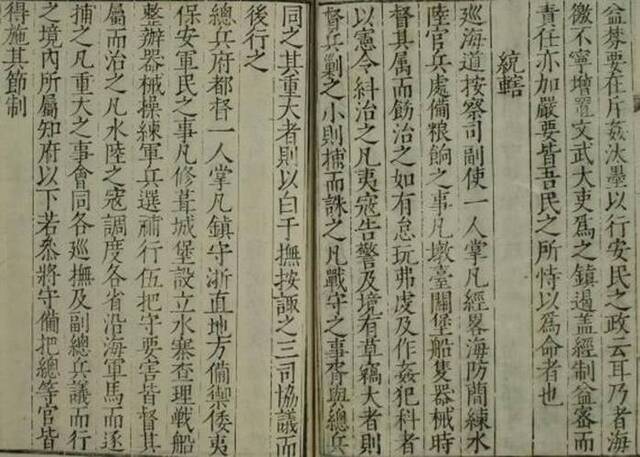 益棼要在斥姦汰墨以行安民之政云耳乃者海
徼不寧增置文武大吏為之鎮遏蓋經制益密而
責任亦加嚴要皆吾民之所恃以為命者也
統轄
巡海道按察司副使一人掌凡經畧海防蕳練水
陸官兵處備粮餉之事凡墩臺關堡船隻器械時
督其属而飭治之如有怠玩弗虔及作姦犯科者
以憲令糾治之凡夷寇告警及境有草竊大者則
督兵剿之小則捕而誅之凡戰守之事胥與總兵
同之其重大者則以白于撫按諏之三司協議而
後行之
總兵府都督一人掌凡鎮守浙直地方備禦倭夷
保安軍民之事凡修葺城堡設立水寨查理戰船
整辦器械操練軍兵選補行伍把守要害皆督其
屬而治之凡水陸之寇調度各省沿海軍馬而逐
捕之凡重大之事會同各巡撫及副總兵議而行
之境內所屬知府以下若叅將守備把總等官皆
得施其節制